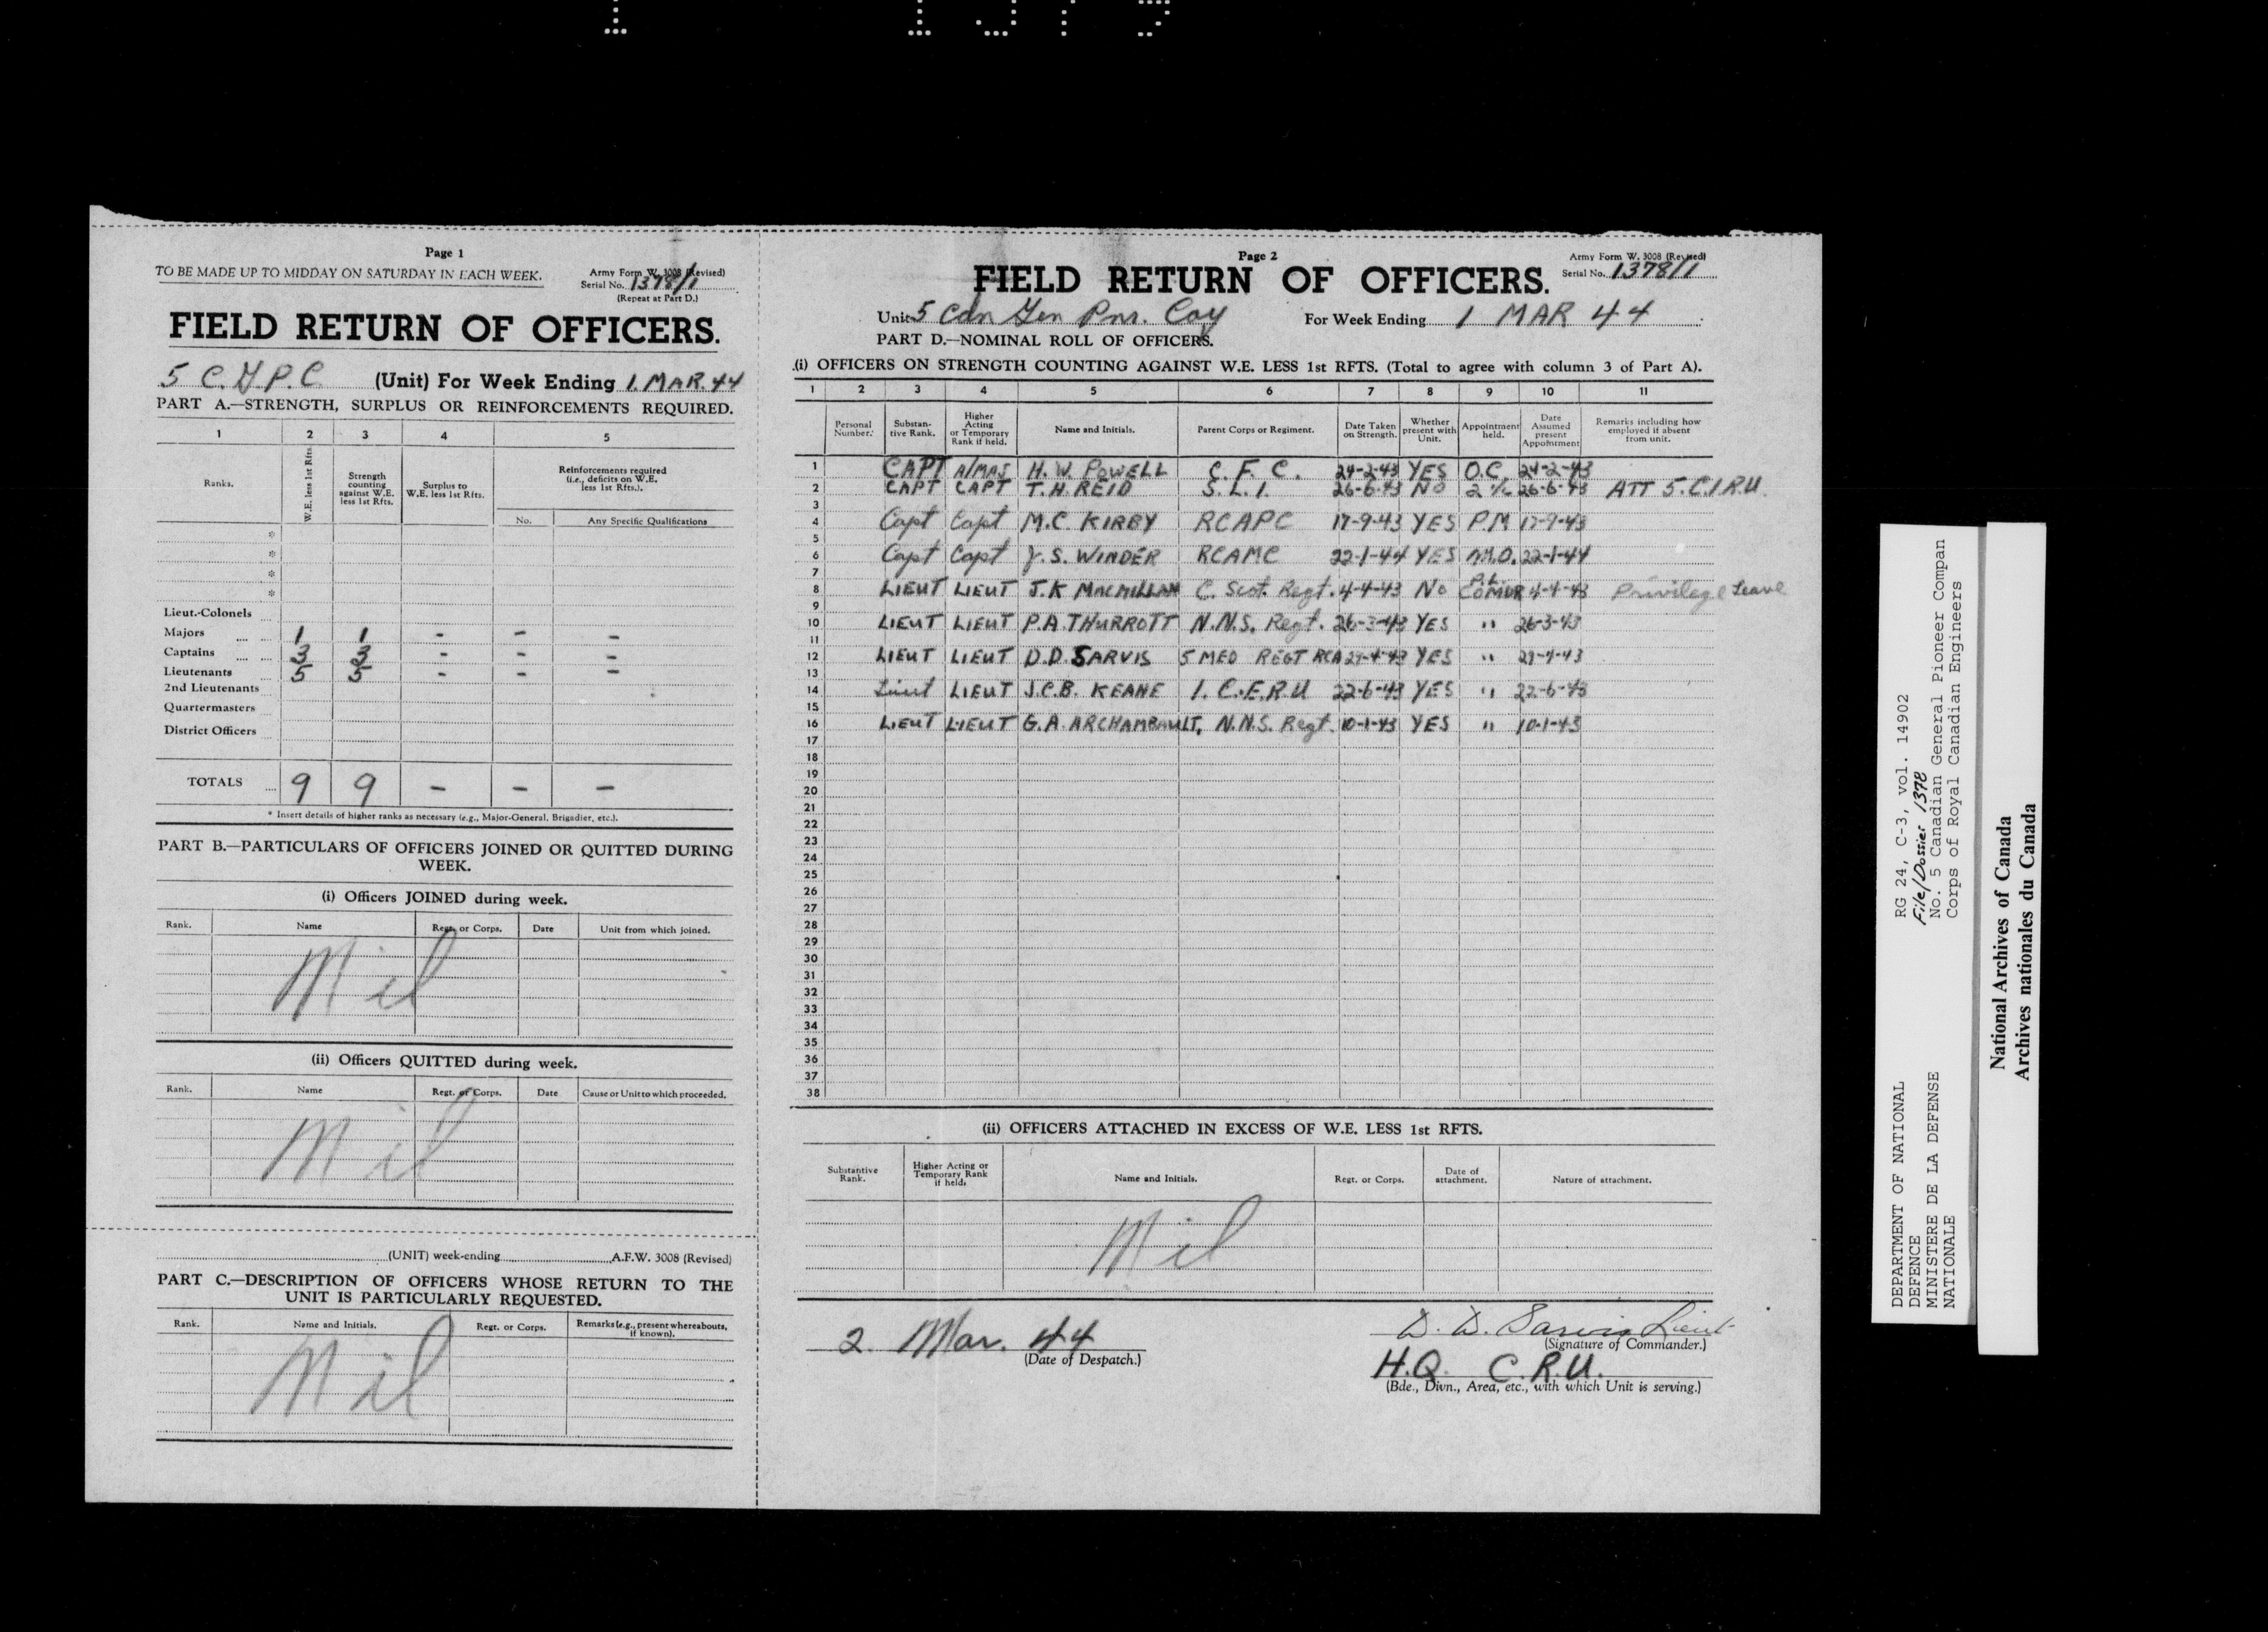 Page 1
TO BE MADE UP TO MIDDAY ON SATURDAY IN EACH WEEK.
Army Form W. 3008 (Revised)
Serial No. 1378/1
(Repeat at Part D.)
FIELD RETURN OF OFFICERS.
5 C.G.P.C. (Unit) For Week Ending 1. MAR. 44
PART A.—STRENGTH, SURPLUS OR REINFORCEMENTS REQUIRED.
1 2 3 4 5
Ranks. W.E. less 1st Rfts. Strength counting against W.E. less 1st Rfts. Surplus to W.E. less 1st Rfts. Reinforcements required (i.e., deficits on W.E. less 1st Rfts.).
No. Any Specific Qualifications
*
*
*
*
Lieut.-Colonels
Majors 1 1 - - -
Captains 3 3 - - -
Lieutenants 5 5 - - -
2nd Lieutenants
Quartermasters
District Officers
TOTALS 9 9 - - -
* Insert details of higher ranks as necessary (e.g., Major-General, Brigadier, etc.).
PART B.—PARTICULARS OF OFFICERS JOINED OR QUITTED DURING
WEEK.
(i) Officers JOINED during week.
Rank. Name Regt. or Corps. Date Unit from which joined.
Nil
(ii) Officers QUITTED during week.
Rank. Name Regt. or Corps. Date Cause or Unit to which proceeded.
Nil
(UNIT) week-ending A.F.W. 3008 (Revised)
PART C.—DESCRIPTION OF OFFICERS WHOSE RETURN TO THE
UNIT IS PARTICULARLY REQUESTED.
Rank. Name and Initials. Regt. or Corps. Remarks (e.g., present whereabouts, if known).
Nil
Page 2
Army Form W. 3008 (Revised)
Serial No. 1378/1
FIELD RETURN OF OFFICERS.
Unit 5 Cdn Gen Pnr. Coy For Week Ending 1 MAR 44
PART D.—NOMINAL ROLL OF OFFICERS.
(i) OFFICERS ON STRENGTH COUNTING AGAINST W.E. LESS 1st RFTS. (Total to agree with column 3 of Part A).
1 2 3 4 5 6 7 8 9 10 11
Personal Number. Substantive Rank. Higher Acting or Temporary Rank if held. Name and Initials. Parent Corps or Regiment. Date Taken on Strength. Whether present with Unit. Appointment held. Date Assumed present Appointment Remarks including how employed if absent from unit.
1 CAPT A/MAJ H.W. POWELL C.F.C. 24-2-43 YES O.C. 24-2-43
2 CAPT CAPT T.H. REID S.L.I. 26-6-43 NO 2 i/c 26-6-43 ATT 5.C.I.R.U.
3
4 Capt Capt M.C. KIRBY RCAPC 17-9-43 YES P.M 17-9-43
5
6 Capt Capt J.S. WINDER RCAMC 22-1-44 YES M.O. 22-1-44
7
8 LIEUT LIEUT J.K MACMILLAN C. Scot. Regt. 4-4-43 NO PL. COMDR 4-4-43 Privilege Leave
9
10 LIEUT LIEUT P.A. THURROTT N.N.S. Regt. 26-3-43 YES " 26-3-43
11
12 LIEUT LIEUT D.D. SARVIS 5 MED REGT RCA 29-4-43 YES " 29-4-43
13
14 Lieut LIEUT J.C.B. KEANE 1. C.E.R.U 22-6-43 YES " 22-6-43
15
16 LIEUT LIEUT G.A. ARCHAMBAULT, N.N.S. Regt. 10-1-43 YES " 10-1-43
17
18
19
20
21
22
23
24
25
26
27
28
29
30
31
32
33
34
35
36
37
38
(ii) OFFICERS ATTACHED IN EXCESS OF W.E. LESS 1st RFTS.
Substantive Rank. Higher Acting or Temporary Rank if held. Name and Initials. Regt. or Corps. Date of attachment. Nature of attachment.
Nil
2 Mar. 44
(Date of Despatch.)
D. D. Sarvis Lieut
(Signature of Commander.)
H.Q. C.R.U.
(Bde., Divn., Area, etc., with which Unit is serving.)
DEPARTMENT OF NATIONAL
DEFENCE
MINISTERE DE LA DEFENSE
NATIONALE
RG 24, C-3, vol. 14902
File/Dossier 1378
No. 5 Canadian General Pioneer Compan
Corps of Royal Canadian Engineers
National Archives of Canada
Archives nationales du Canada